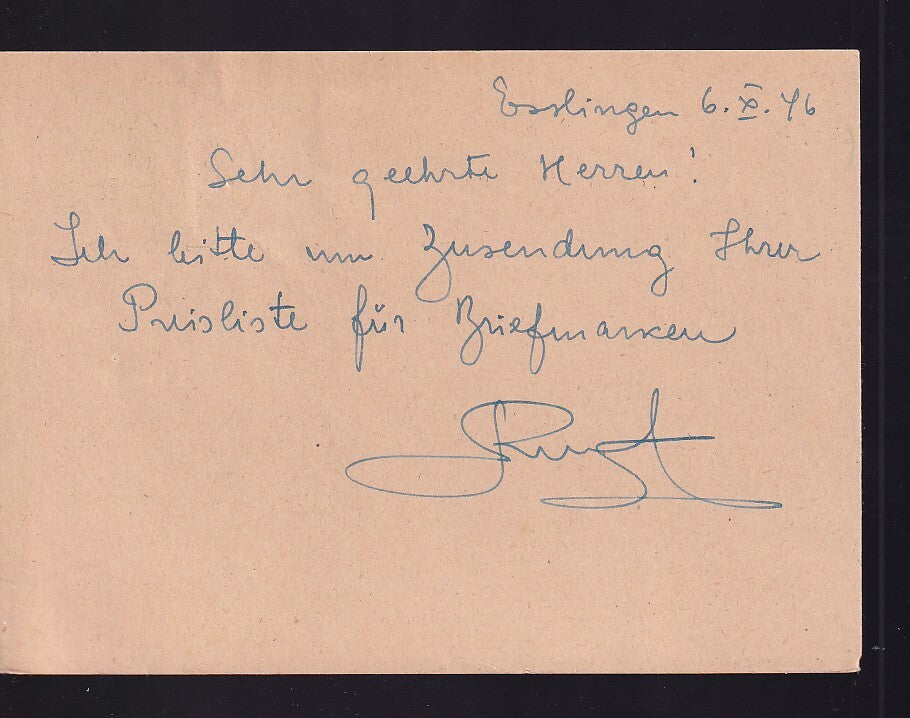 Esslingen 6. X. 46
Sehr geehrte Herren!
Ich bitte um Zusendung Ihrer
Preisliste für Briefmarken